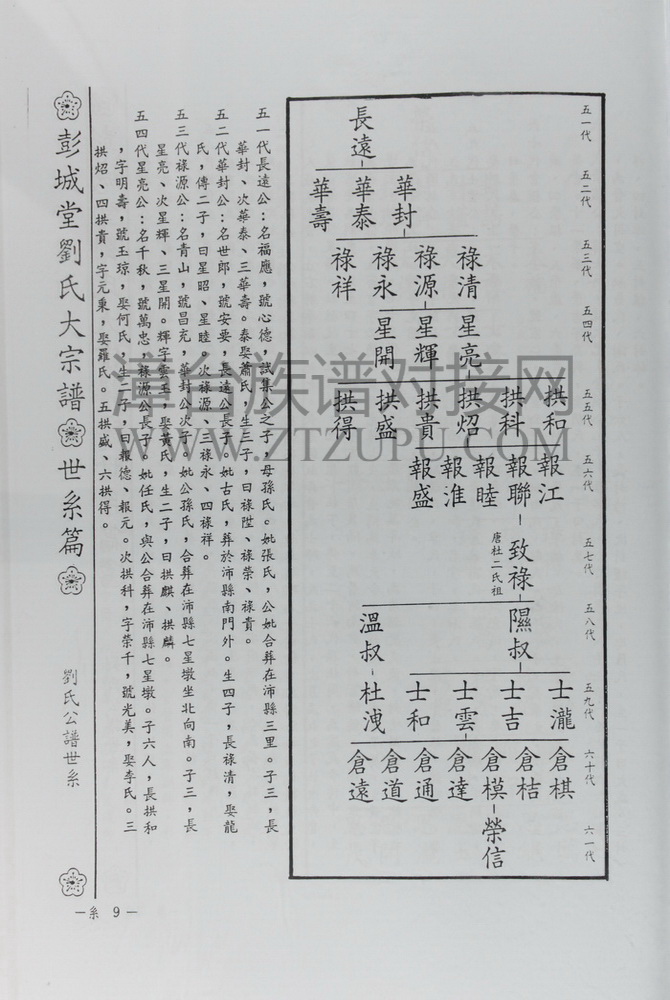 五一代
長遠
五二代
華封
華泰
華壽
五三代
祿清
祿源
祿永
祿祥
五四代
星亮
星輝
星開
五五代
拱和
拱科
拱炤
拱貴
拱盛
拱得
五六代
報江
報聯
報睦
報淮
報盛
五七代
致祿
唐杜二氏祖
五八代
隰叔
溫叔
五九代
士瀧
士吉
士雲
士和
杜洩
六十代
倉棋
倉桔
倉模
倉達
倉通
倉道
倉遠
六一代
榮信
五一代長遠公：名福應，號心德，試集公之子，母孫氏。妣張氏，公妣合葬在沛縣三里。子三，長
華封、次華泰、三華壽。泰娶蕭氏，生三子，曰祿陞、祿榮、祿貴。
五二代華封公：名世郎，號安要，長遠公長子。妣古氏，葬於沛縣南門外。生四子，長祿清，娶龍
氏，傳二子，曰星昭、星睦。次祿源、三祿永、四祿祥。
五三代祿源公：名青山，號昌充，華封公次子。妣公孫氏，合葬在沛縣七星墩坐北向南。子三，長
星亮、次星輝、三星開。輝字雲玉，娶黃氏，生二子，曰拱麒、拱麟。
五四代星亮公：名千秋，號萬忠，祿源公長子。妣任氏，與公合葬在沛縣七星墩。子六人，長拱和
，字明壽，號玉琼，娶何氏，生二子，曰報德、報元。次拱科，字榮千，號光美，娶李氏。三
拱炤、四拱貴，字元秉，娶羅氏。五拱盛、六拱得。
彭城堂劉氏大宗譜 世系篇
劉氏公譜世系
—系 9—
尋台族谱对接网
WWW.ZTZUPU.COM